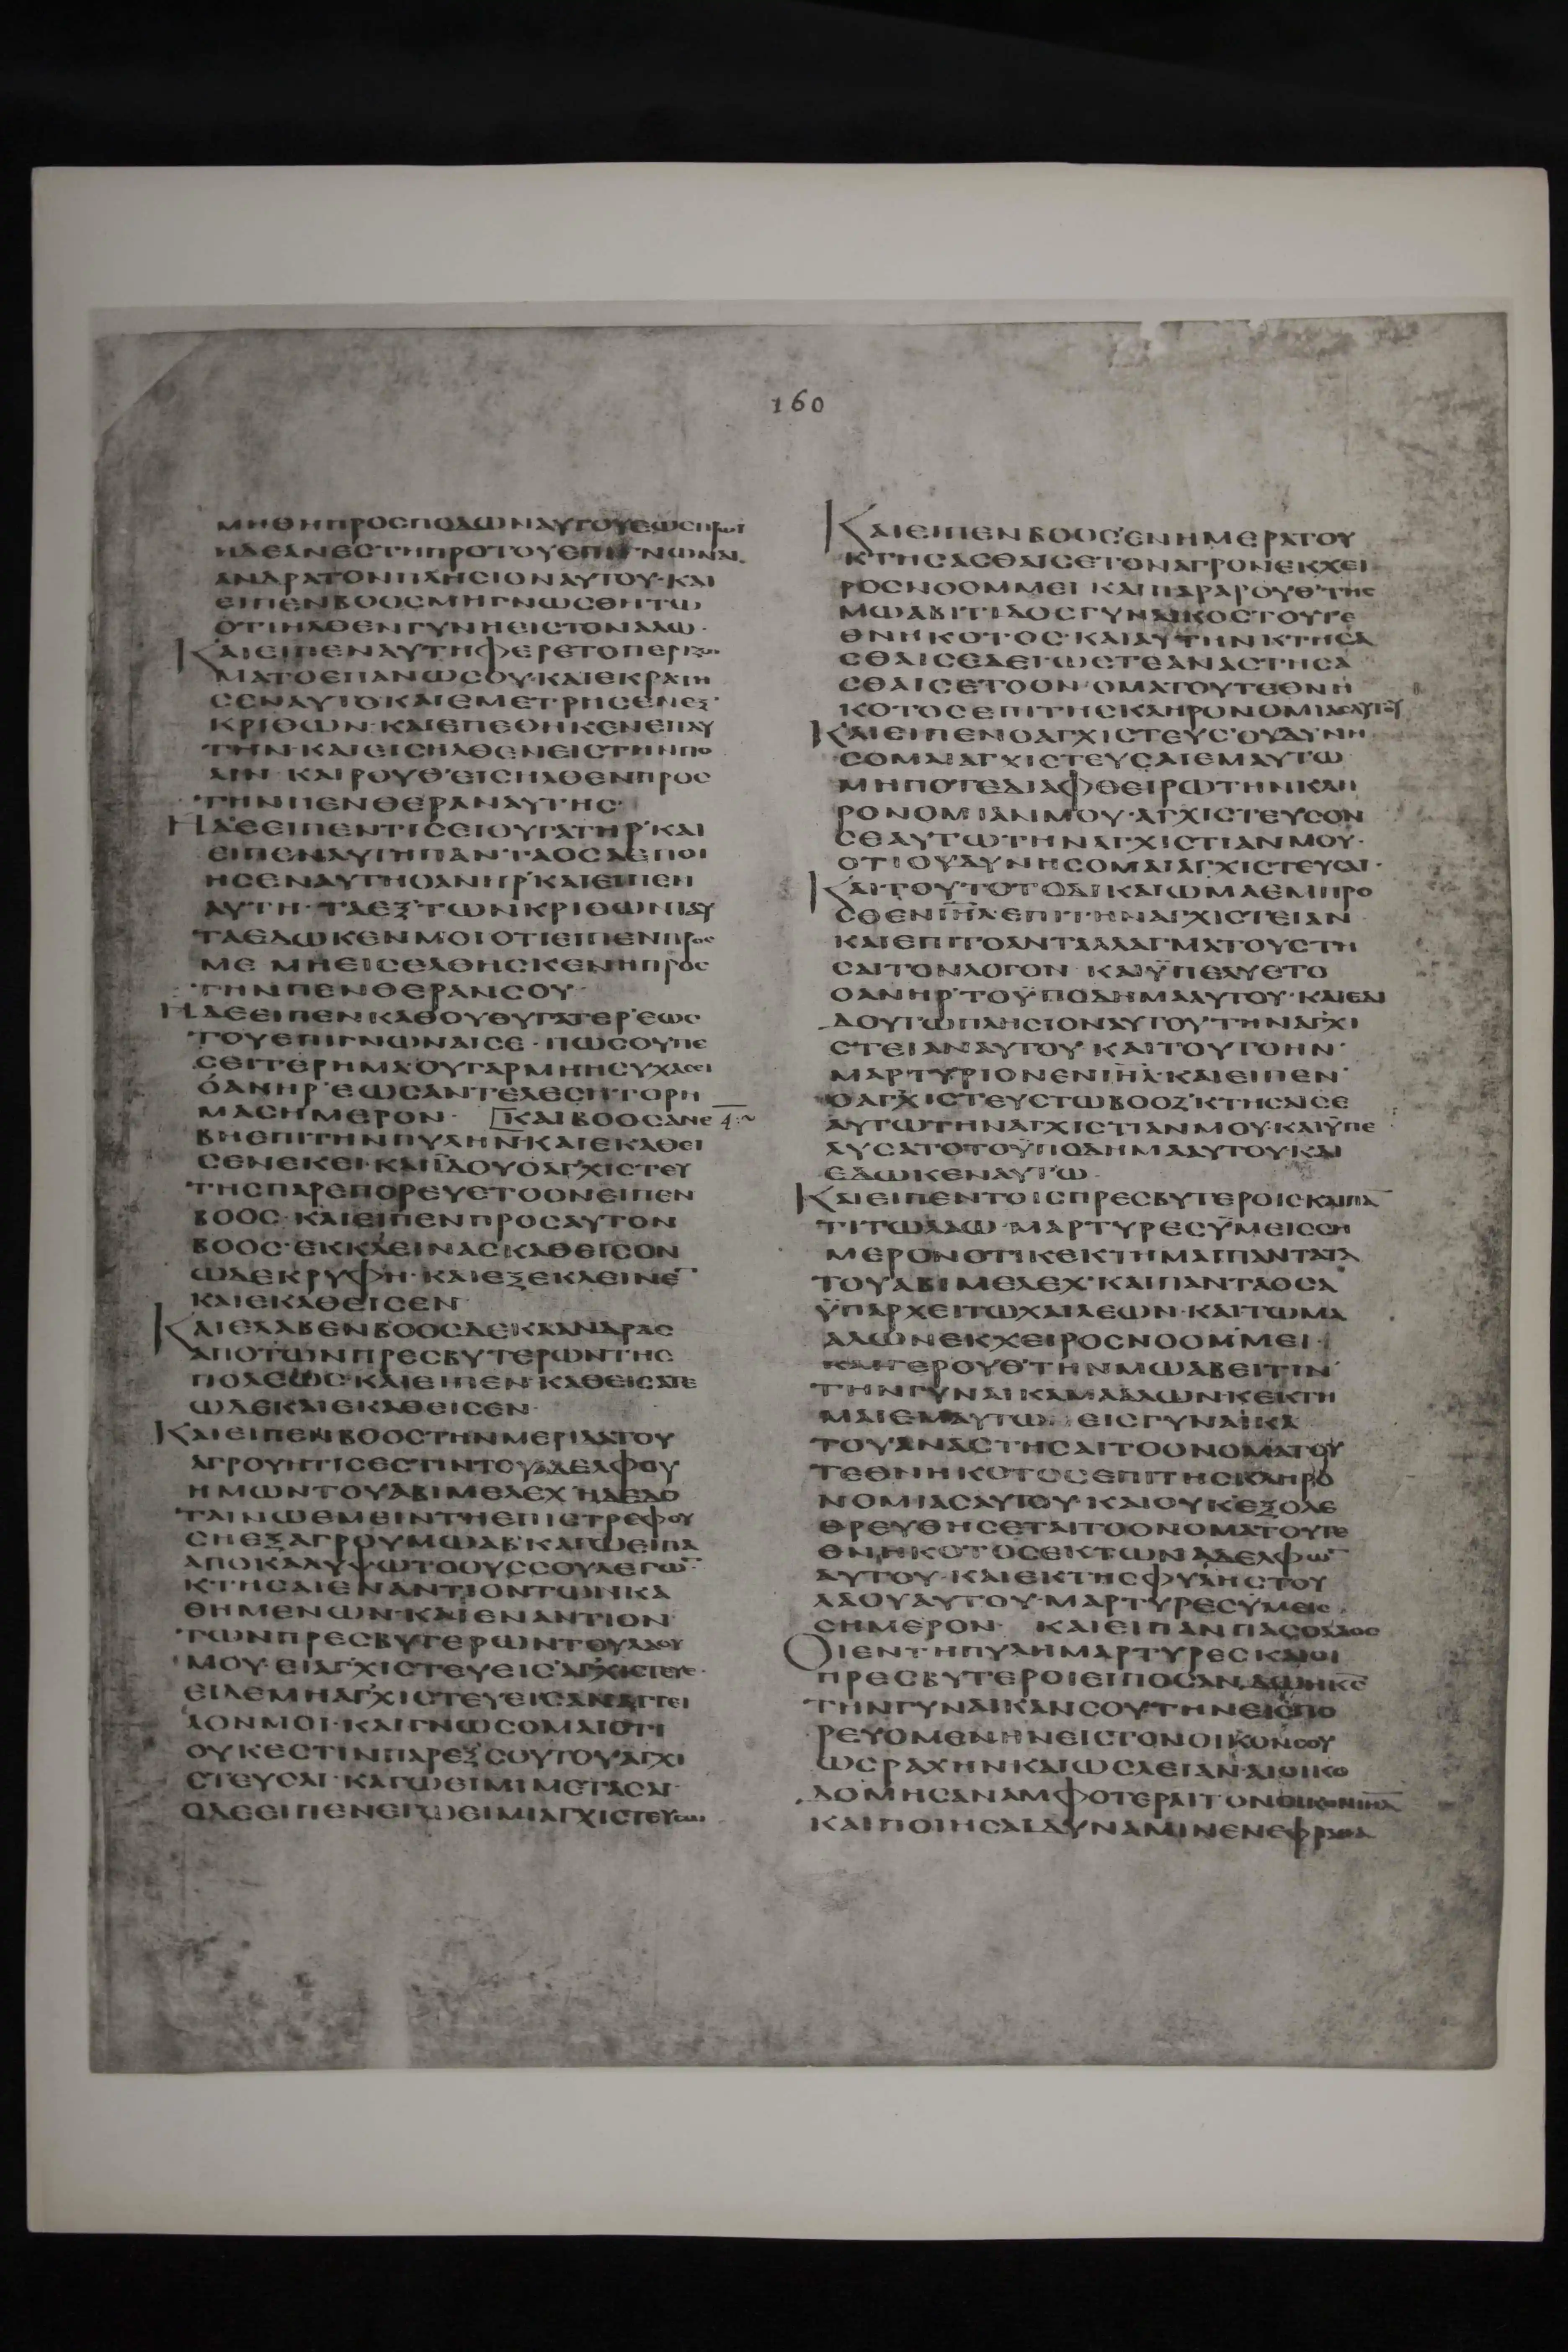 160
ΜΗΘΗΠΡΟΣΠΟΔΩΝΑΥΤΟΥΕΩΣΠΡΩΙ
ΗΔΕΑΝΕΣΤΗΠΡΟΤΟΥΕΠΙΓΝΩΝΑΙ
ΑΝΔΡΑΤΟΝΠΛΗΣΙΟΝΑΥΤΟΥ·ΚΑΙ
ΕΙΠΕΝΒΟΟΣΜΗΓΝΩΣΘΗΤΩ
ΟΤΙΗΛΘΕΝΓΥΝΗΕΙΣΤΟΝΑΛΩ·
ΚΑΙΕΙΠΕΝΑΥΤΗΦΕΡΕΤΟΠΕΡΙΖΩ
ΜΑΤΟΕΠΑΝΩΣΟΥ·ΚΑΙΕΚΡΑΤΗ
ΣΕΝΑΥΤΟΚΑΙΕΜΕΤΡΗΣΕΝΕΞ
ΚΡΙΘΩΝ·ΚΑΙΕΠΕΘΗΚΕΝΕΠΑΥ
ΤΗΝ·ΚΑΙΕΙΣΗΛΘΕΝΕΙΣΤΗΝΠΟ
ΛΙΝ ΚΑΙΡΟΥΘ'ΕΙΣΗΛΘΕΝΠΡΟΣ
ΤΗΝΠΕΝΘΕΡΑΝΑΥΤΗΣ·
ΗΔΕΕΙΠΕΝΤΙΣΕΙΘΥΓΑΤΗΡ'ΚΑΙ
ΕΙΠΕΝΑΥΤΗΠΑΝΤΑΟΣΑΕΠΟΙ
ΗΣΕΝΑΥΤΗΟΑΝΗΡ'ΚΑΙΕΙΠΕΝ
ΑΥΤΗ·ΤΑΕΞ'ΤΩΝΚΡΙΘΩΝΤΑΥ
ΤΑΕΔΩΚΕΝΜΟΙΟΤΙΕΙΠΕΝΠΡΟΣ
ΜΕ ΜΗΕΙΣΕΛΘΗΣΚΕΝΗΠΡΟΣ
ΤΗΝΠΕΝΘΕΡΑΝΣΟΥ·
ΗΔΕΕΙΠΕΝΚΑΘΟΥΘΥΓΑΤΕΡ'ΕΩΣ
ΤΟΥΕΠΙΓΝΩΝΑΙΣΕ·ΠΩΣΟΥΠΕ
ΣΕΙΤΕΡΗΜΑΟΥΓΑΡΜΗΗΣΥΧΑΣΕΙ
ΟΑΝΗΡ'ΕΩΣΑΝΤΕΛΕΣΗΤΟΡΗ
ΜΑΣΗΜΕΡΟΝ· ΚΑΙΒΟΟΣΑΝΕ 4:~
ΒΗΕΠΙΤΗΝΠΥΛΗΝ·ΚΑΙΕΚΑΘΕΙ
ΣΕΝΕΚΕΙ·ΚΑΙΪΔΟΥΟΑΓ'ΧΙΣΤΕΥ
ΤΗΣΠΑΡΕΠΟΡΕΥΕΤΟΟΝΕΙΠΕΝ
ΒΟΟΣ·ΚΑΙΕΙΠΕΝΠΡΟΣΑΥΤΟΝ
ΒΟΟΣ·ΕΚΚΛΕΙΝΑΣΚΑΘΕΙΣΟΝ
ΩΔΕΚΡΥΦΗ·ΚΑΙΕΞΕΚΛΕΙΝΕ̅
ΚΑΙΕΚΑΘΕΙΣΕΝ
ΚΑΙΕΛΑΒΕΝΒΟΟΣΔΕΚΑΑΝΔΡΑΣ
ΑΠΟΤΩΝΠΡΕΣΒΥΤΕΡΩΝΤΗΣ
ΠΟΛΕΩΣ·ΚΑΙΕΙΠΕΝ·ΚΑΘΕΙΣΑΤΕ
ΩΔΕΚΑΙΕΚΑΘΕΙΣΕΝ·
ΚΑΙΕΙΠΕΝΒΟΟΣΤΗΝΜΕΡΙΔΑΤΟΥ
ΑΓΡΟΥΗΤΙΣΕΣΤΙΝΤΟΥΑΔΕΛΦΟΥ
ΗΜΩΝΤΟΥΑΒΙΜΕΛΕΧ'ΗΔΕΔΟ
ΤΑΙΝΩΕΜΕΙΝΤΗΕΠΙΣΤΡΕΦΟΥ
ΣΗΕΞΑΓΡΟΥΜΩΑΒ'ΚΑΓΩΕΙΠΑ
ΑΠΟΚΑΛΥΨΩΤΟΟΥΣΣΟΥΛΕΓΩ̅
ΚΤΗΣΑΙΕΝΑΝΤΙΟΝΤΩΝΚΑ
ΘΗΜΕΝΩΝ·ΚΑΙΕΝΑΝΤΙΟΝ
ΤΩΝΠΡΕΣΒΥΤΕΡΩΝΤΟΥΛΑΟΥ
ΜΟΥ·ΕΙΑΓ'ΧΙΣΤΕΥΕΙΣ'ΑΓ'ΧΙΣΤΕΥΕ·
ΕΙΔΕΜΗΑΓ'ΧΙΣΤΕΥΕΙΣΑΝΑΓΓΕΙ
ΛΟΝΜΟΙ·ΚΑΙΓΝΩΣΟΜΑΙΟΤΙ
ΟΥΚΕΣΤΙΝΠΑΡΕΞ'ΣΟΥΤΟΥΑΓΧΙ
ΣΤΕΥΣΑΙ·ΚΑΓΩΕΙΜΙΜΕΤΑΣΑΙ·
ΟΔΕΕΙΠΕΝΕΓΩΕΙΜΙΑΓΧΙΣΤΕΥΣΩ
ΚΑΙΕΙΠΕΝΒΟΟΣ'ΕΝΗΜΕΡΑΤΟΥ
ΚΤΗΣΑΣΘΑΙΣΕΤΟΝΑΓΡΟΝΕΚΧΕΙ
ΡΟΣΝΟΟΜΜΕΙ ΚΑΙΠΑΡΑΡΟΥΘ'ΤΗΣ
ΜΩΑΒΙΤΙΔΟΣΓΥΝΑΙΚΟΣΤΟΥΤΕ
ΘΝΗΚΟΤΟΣ·ΚΑΙΑΥΤΗΝΚΤΗΣΑ
ΣΘΑΙΣΕΔΕΙΩΣΤΕΑΝΑΣΤΗΣΑ
ΣΘΑΙΣΕΤΟΟΝΟΜΑΤΟΥΤΕΘΝΗ
ΚΟΤΟΣΕΠΙΤΗΣΚΛΗΡΟΝΟΜΙΑΣΑΥΤΟΥ
ΚΑΙΕΙΠΕΝΟΑΓΧΙΣΤΕΥΣ'ΟΥΔΥΝΗ
ΣΟΜΑΙΑΓΧΙΣΤΕΥΣΑΙΕΜΑΥΤΩ
ΜΗΠΟΤΕΔΙΑΦΘΕΙΡΩΤΗΝΚΛΗ
ΡΟΝΟΜΙΑΝΜΟΥ·ΑΓΧΙΣΤΕΥΣΟΝ
ΣΕΑΥΤΩΤΗΝΑΓ'ΧΙΣΤΙΑΝΜΟΥ·
ΟΤΙΟΥΔΥΝΗΣΟΜΑΙΑΓ'ΧΙΣΤΕΥΣΑΙ·
ΚΑΙΤΟΥΤΟΤΟΔΙΚΑΙΩΜΑΕΜΠΡΟ
ΣΘΕΝΙ̅Η̅Λ̅ΕΠΙΤΗΝΑΓ'ΧΙΣΤΕΙΑΝ
ΚΑΙΕΠΙΤΟΑΝΤΑΛΛΑΓΜΑΤΟΥΣΤΗ
ΣΑΙΤΟΝΛΟΓΟΝ ΚΑΙΫΠΕΛΥΕΤΟ
ΟΑΝΗΡ'ΤΟΫΠΟΔΗΜΑΑΥΤΟΥ·ΚΑΙΕΔΙ
ΔΟΥΤΩΠΛΗΣΙΟΝΑΥΤΟΥΤΗΝΑΓ'ΧΙ
ΣΤΕΙΑΝΑΥΤΟΥ ΚΑΙΤΟΥΤΟΗΝ·
ΜΑΡΤΥΡΙΟΝΕΝΙ̅Η̅Λ̅·ΚΑΙΕΙΠΕΝ
ΟΑΓ'ΧΙΣΤΕΥΣΤΩΒΟΟΖ'ΚΤΗΣΑΙΣΕ
ΑΥΤΩΤΗΝΑΓ'ΧΙΣΤΙΑΝΜΟΥ·ΚΑΙΫΠΕ
ΛΥΣΑΤΟΤΟΫΠΟΔΗΜΑΑΥΤΟΥΚΑΙ
ΕΔΩΚΕΝΑΥΤΩ·
ΚΑΙΕΙΠΕΝΤΟΙΣΠΡΕΣΒΥΤΕΡΟΙΣΚΑΙΠΑ̅
ΤΙΤΩΛΑΩ·ΜΑΡΤΥΡΕΣΫΜΕΙΣΣΗ
ΜΕΡΟΝΟΤΙΚΕΚΤΗΜΑΙΠΑΝΤΑΤΑ
ΤΟΥΑΒΙΜΕΛΕΧ'ΚΑΙΠΑΝΤΑΟΣΑ
ΫΠΑΡΧΕΙΤΩΧΑΙΛΕΩΝ·ΚΑΙΤΩΜΑ
ΑΛΩΝΕΚΧΕΙΡΟΣΝΟΟΜΜΕΙ·
ΚΑΙΓΕΡΟΥΘ'ΤΗΝΜΩΑΒΕΙΤΙΝ
ΤΗΝΓΥΝΑΙΚΑΜΑΑΛΩΝΚΕΚΤΗ
ΜΑΙΕΜΑΥΤΩ ΕΙΣΓΥΝΑΙΚΑ
ΤΟΥΑΝΑΣΤΗΣΑΙΤΟΟΝΟΜΑΤΟΥ
ΤΕΘΝΗΚΟΤΟΣΕΠΙΤΗΣΚΛΗΡΟ
ΝΟΜΙΑΣΑΥΤΟΥ·ΚΑΙΟΥΚ'ΕΞΟΛΕ
ΘΡΕΥΘΗΣΕΤΑΙΤΟΟΝΟΜΑΤΟΥΤΕ
ΘΝΗΚΟΤΟΣΕΚΤΩΝΑΔΕΛΦΩ̅
ΑΥΤΟΥ·ΚΑΙΕΚΤΗΣΦΥΛΗΣΤΟΥ
ΛΑΟΥΑΥΤΟΥ·ΜΑΡΤΥΡΕΣΫΜΕΙΣ
ΣΗΜΕΡΟΝ· ΚΑΙΕΙΠΑΝΠΑΣΟΛΑΟΣ
ΟΙΕΝΤΗΠΥΛΗΜΑΡΤΥΡΕΣΚΑΙΟΙ
ΠΡΕΣΒΥΤΕΡΟΙΕΙΠΟΣΑΝ·ΔΩΗΚ̅Σ̅
ΤΗΝΓΥΝΑΙΚΑΝΣΟΥ·ΤΗΝΕΙΣΠΟ
ΡΕΥΟΜΕΝΗΝΕΙΣΤΟΝΟΙΚΟΝΣΟΥ
ΩΣΡΑΧΗΝΚΑΙΩΣΛΕΙΑΝ·ΑΙΟΙΚΟ
ΔΟΜΗΣΑΝΑΜΦΟΤΕΡΑΙΤΟΝΟΙΚΟΝΙ̅Η̅Λ̅
ΚΑΙΠΟΙΗΣΑΙΔΥΝΑΜΙΝΕΝΕΦΡΑΘΑ